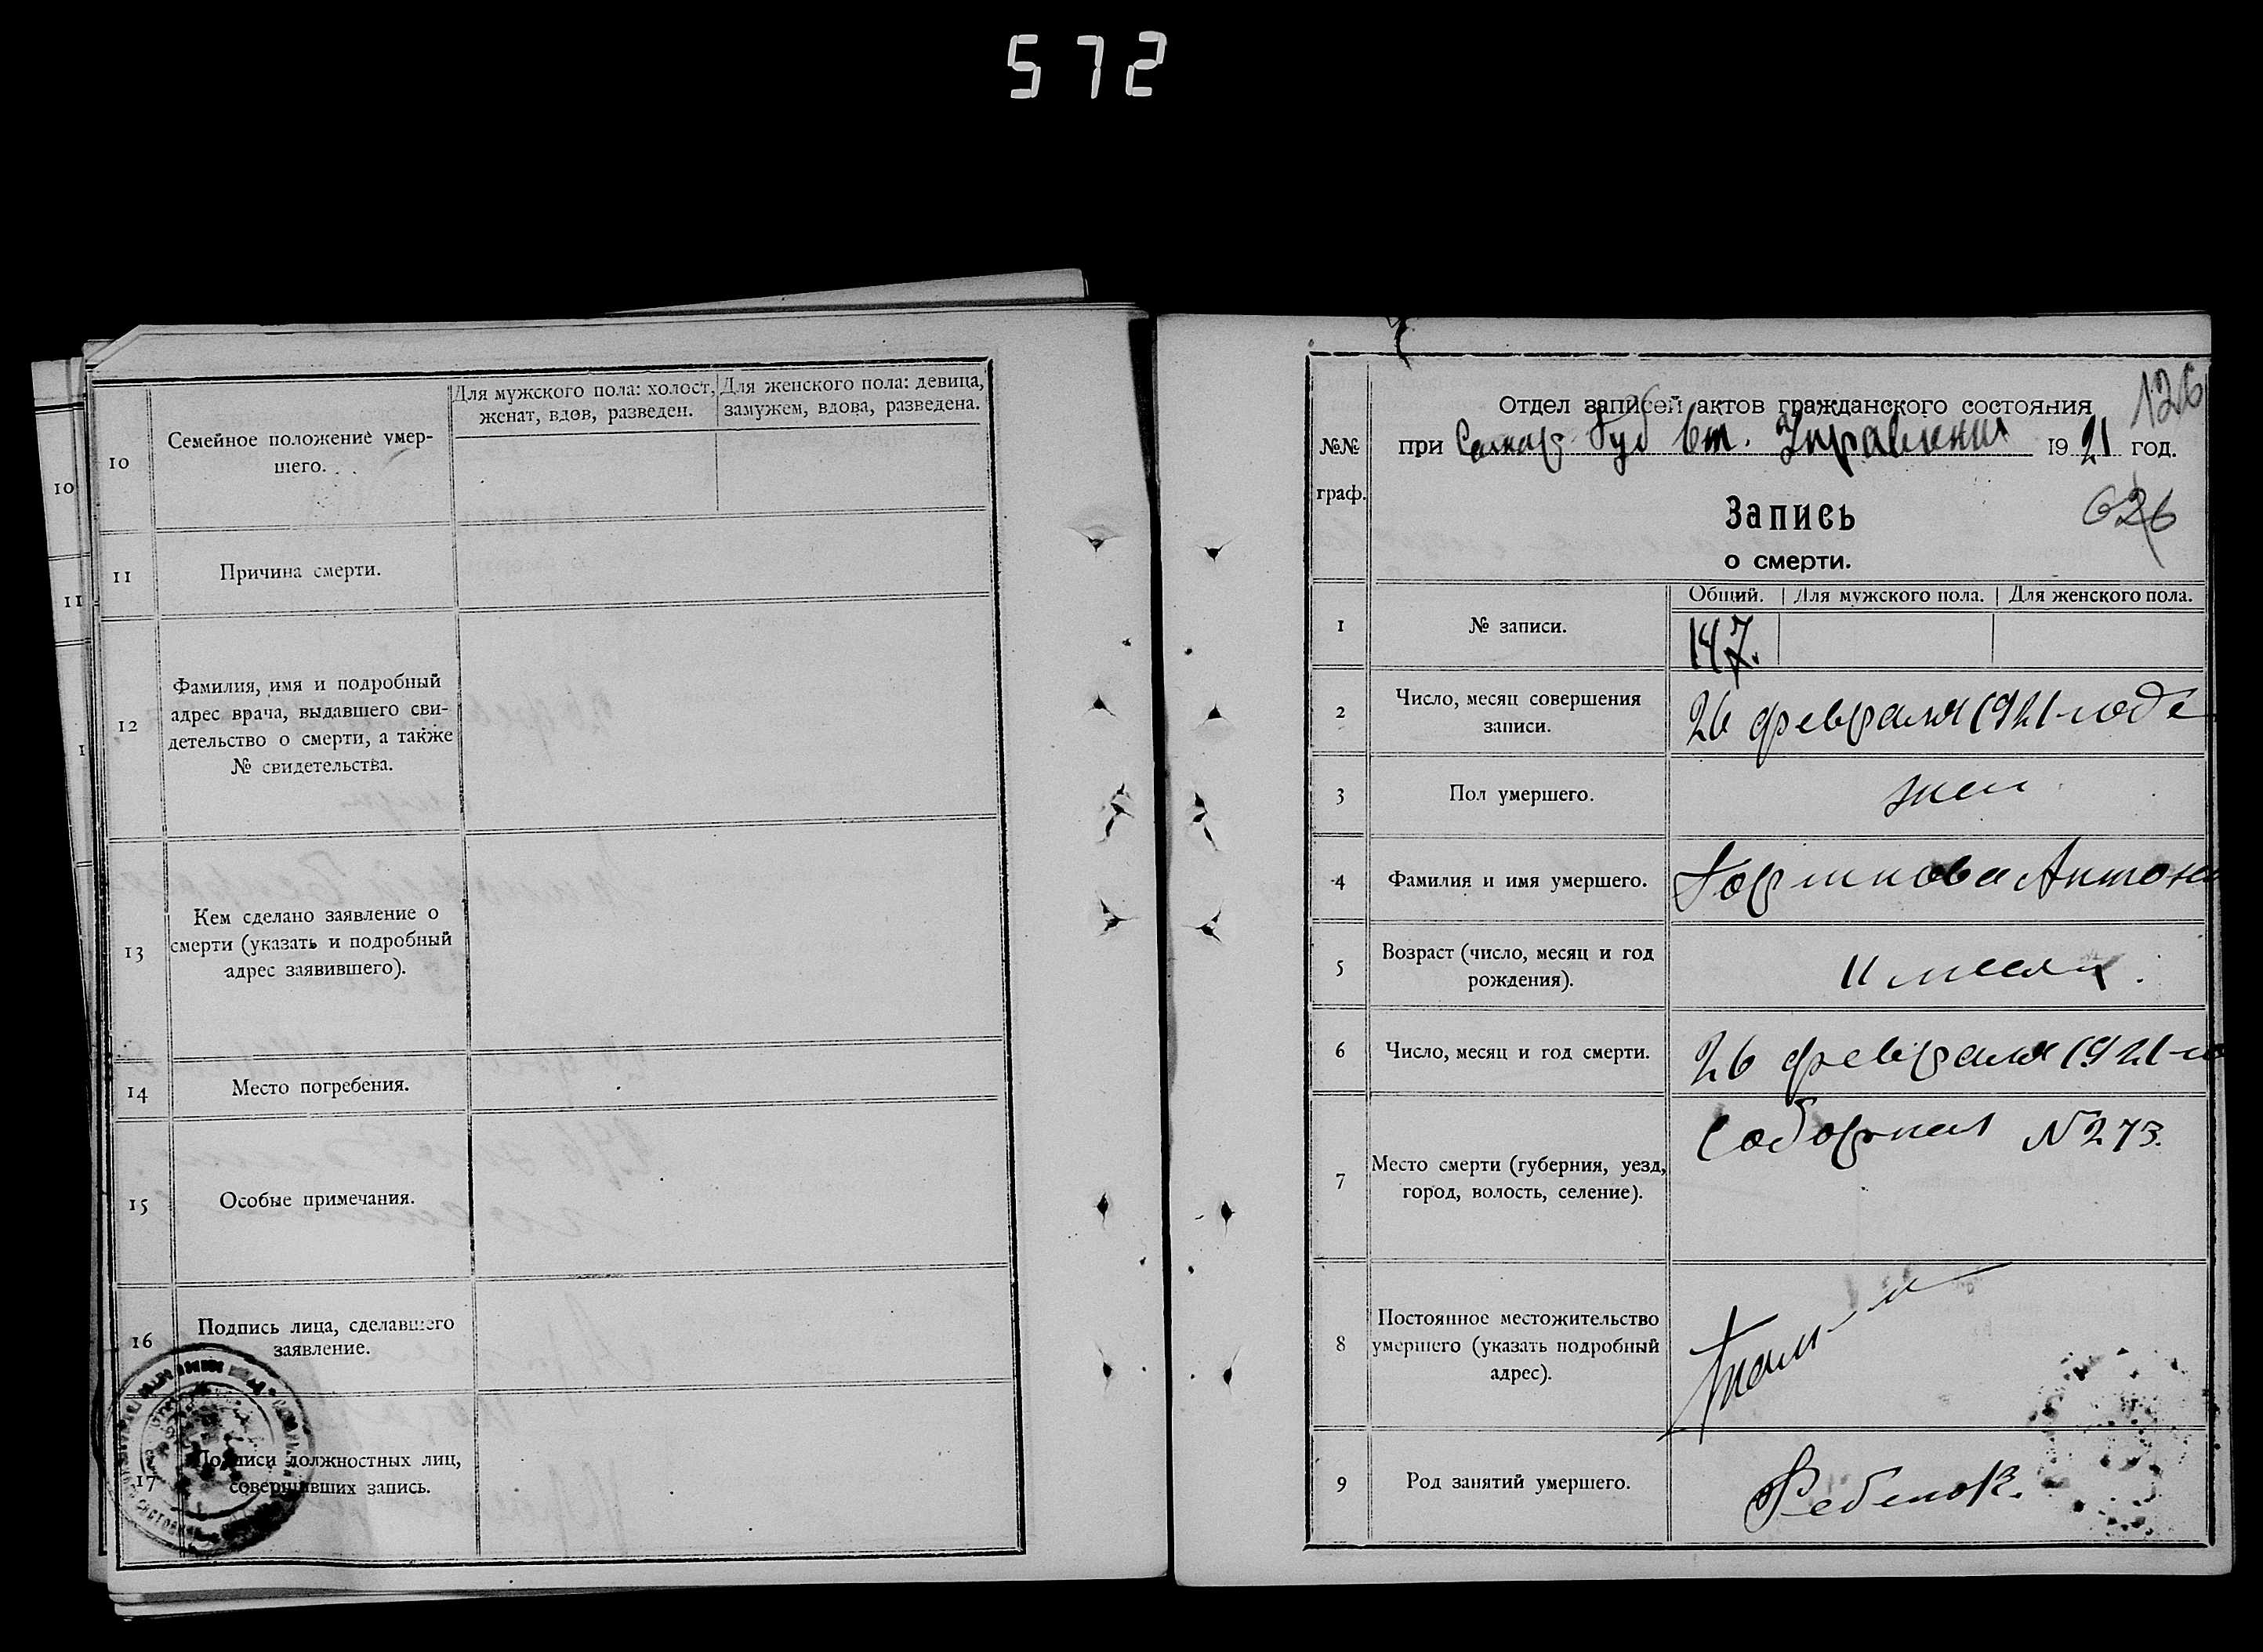 572
10
11
1
10
Семейное положение умер-
шего.
Для мужского пола: холост,
женат, вдов, разведен.
Для женского пола: девица,
замужем, вдова, разведена.
11
Причина смерти.
12
Фамилия, имя и подробный
адрес врача, выдавшего сви-
детельство о смерти, а также
№ свидетельства.
13
Кем сделано заявление о
смерти (указать и подробный
адрес заявившего).
14
Место погребения.
15
Особые примечания.
16
Подпись лица, сделавшего
заявление.
17
Подписи должностных лиц,
совершивших запись.
126
№№
граф.
Отдел записей актов гражданского состояния
при Самар Губ От. Управления 1921 год.
626
Запись
о смерти.
Общий. Для мужского пола. Для женского пола.
1
№ записи.
147.
2
Число, месяц совершения
записи.
26 февраля 1921 года
3
Пол умершего.
жен
4
Фамилия и имя умершего.
Горшкова Антони
5
Возраст (число, месяц и год
рождения).
11 месяц.
6
Число, месяц и год смерти.
26 февраля 1921 го
7
Место смерти (губерния, уезд,
город, волость, селение).
Соборная №273.
8
Постоянное местожительство
умершего (указать подробный
адрес).
9
Род занятий умершего.
Ребенок.